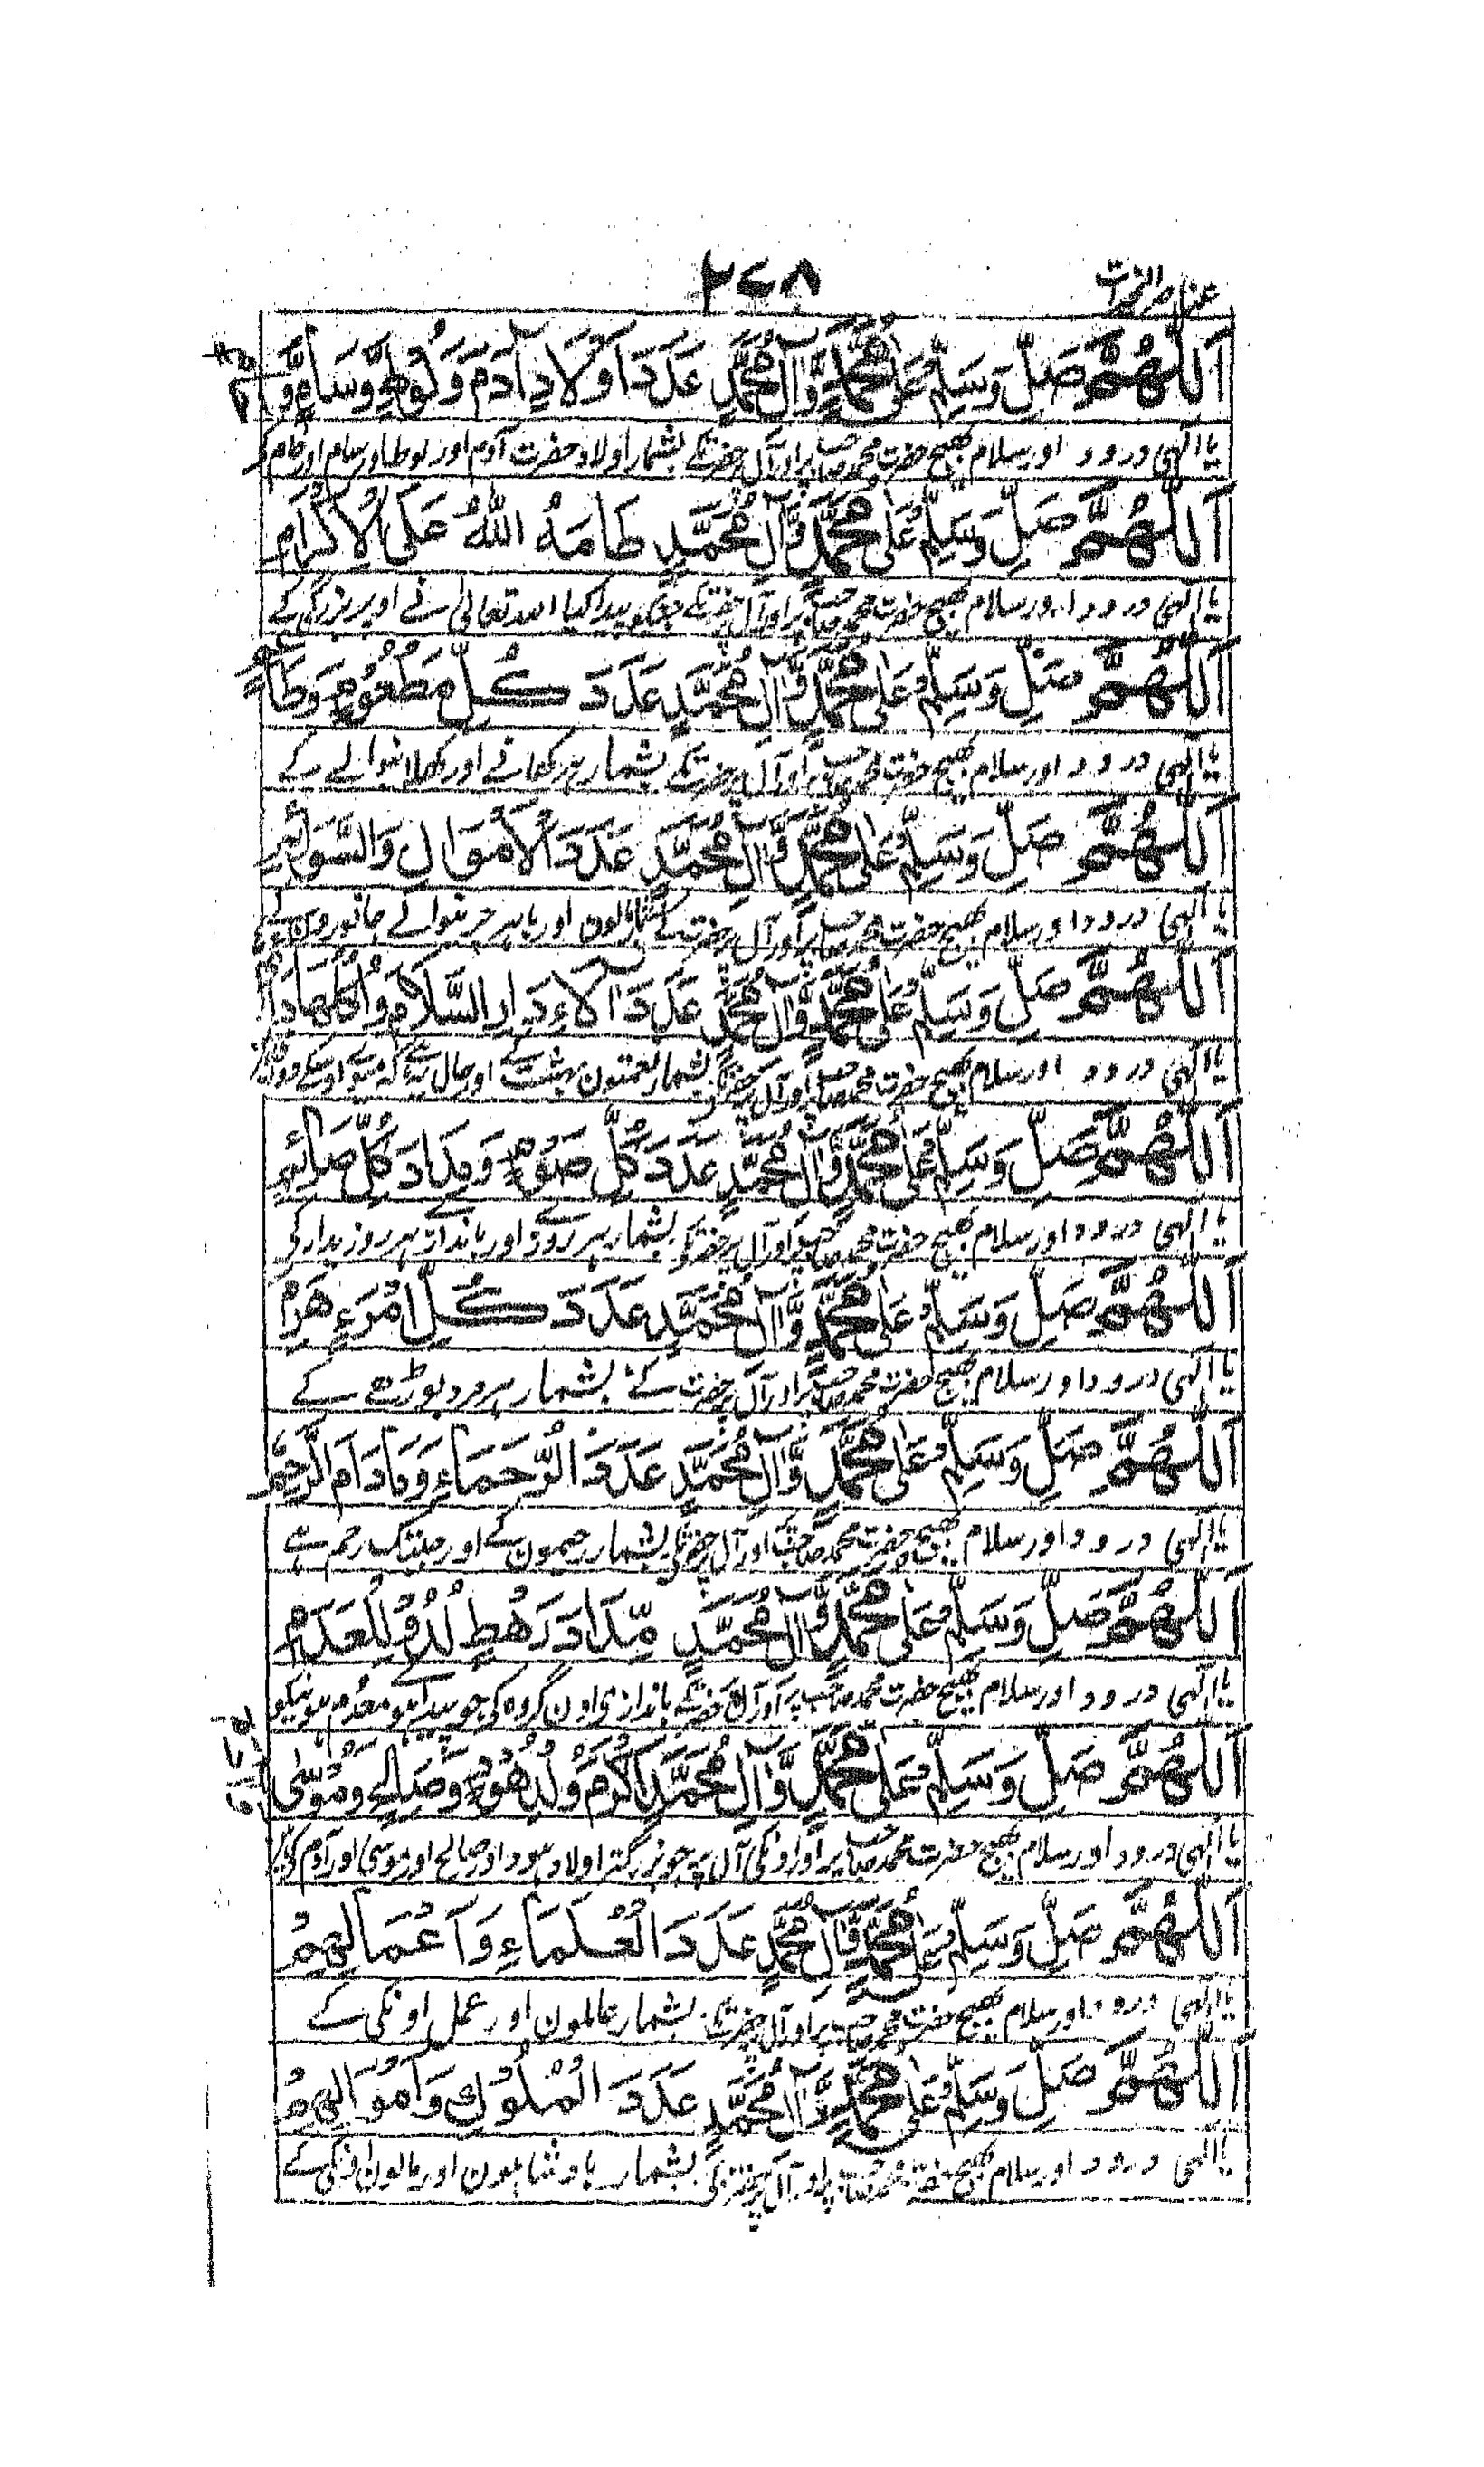 عناصر الخیرات
۲۷۸
اَللّٰهُمَّ صَلِّ وَسَلِّمْ عَلٰى مُحَمَّدٍ وَّآلِ مُحَمَّدٍ عَدَدَ اَوْلَادِ آدَمَ وَلُوْطٍ وَّسَامٍ وَّ
یا الٰہی درود اور سلام بھیج حضرت محمد صاحب پر اور آل حضرت کے بشمار اولاد حضرت آدم اور لوط اور سام اور حام کر
اَللّٰهُمَّ صَلِّ وَسَلِّمْ عَلٰى مُحَمَّدٍ وَّآلِ مُحَمَّدٍ طَامَهُ اللّٰهُ عَلَى الْاِكْرَامِ
یا الٰہی درود اور سلام بھیج حضرت محمد صاحب پر اور آل حضرت کے جنکو پیدا کیا اللہ تعالیٰ نے اوپر بزرگی کے
اَللّٰهُمَّ صَلِّ وَسَلِّمْ عَلٰى مُحَمَّدٍ وَّآلِ مُحَمَّدٍ عَدَدَ كُلِّ مَطْعُوْمٍ وَطَاعِمٍ
یا الٰہی درود اور سلام بھیج حضرت محمد صاحب پر اور آل حضرت کے بشمار ہر کھانے اور کھلانیوالے کے
اَللّٰهُمَّ صَلِّ وَسَلِّمْ عَلٰى مُحَمَّدٍ وَّآلِ مُحَمَّدٍ عَدَدَ الْاَمْوَالِ وَالسَّوَائِمِ
یا الٰہی درود اور سلام بھیج حضرت محمد صاحب پر اور آل حضرت کے بشمار مالون اور باہر چرنیوالے جانورون کے
اَللّٰهُمَّ صَلِّ وَسَلِّمْ عَلٰى مُحَمَّدٍ وَّآلِ مُحَمَّدٍ عَدَدَ آلَاءِ دَارِ السَّلَامِ وَاُكُلُهَا دَائِمٌ
یا الٰہی درود اور سلام بھیج حضرت محمد صاحب پر اور آل حضرت کے بشمار نعمتون بہشت کے اور حال یہ ہے کہ میوے اوسکے
اَللّٰهُمَّ صَلِّ وَسَلِّمْ عَلٰى مُحَمَّدٍ وَّآلِ مُحَمَّدٍ عَدَدَ كُلِّ صَوْمٍ وَمِدَادَ كُلِّ صَائِمٍ
یا الٰہی درود اور سلام بھیج حضرت محمد صاحب پر اور آل حضرت کے بشمار ہر روزے اور باندازہ ہر روزیدار کی
اَللّٰهُمَّ صَلِّ وَسَلِّمْ عَلٰى مُحَمَّدٍ وَّآلِ مُحَمَّدٍ عَدَدَ كُلِّ امْرَءٍ هَرِمٍ
یا الٰہی درود اور سلام بھیج حضرت محمد صاحب پر اور آل حضرت کے بشمار ہر مرد بوڑھے کے
اَللّٰهُمَّ صَلِّ وَسَلِّمْ عَلٰى مُحَمَّدٍ وَّآلِ مُحَمَّدٍ عَدَدَ الرُّحَمَاءِ وَمَادَامَ الرَّحِيْمُ
یا الٰہی درود اور سلام بھیج حضرت محمد صاحب اور آل حضرت کے بشمار رحیمون کے اور جبتک رحم ہے
اَللّٰهُمَّ صَلِّ وَسَلِّمْ عَلٰى مُحَمَّدٍ وَّآلِ مُحَمَّدٍ مِّدَادَ رَهْطٍ لُدُّوْ لِلْعَدَمِ
یا الٰہی درود اور سلام بھیج حضرت محمد صاحب پر اور آل حضرت کے باندازی اون گروہ کی جو پیدا ہے معدوم ہونیکو
اَللّٰهُمَّ صَلِّ وَسَلِّمْ عَلٰى مُحَمَّدٍ وَّآلِ مُحَمَّدٍ اَكْرَمَ وُلْدِ هُوْدٍ وَصَالِحٍ وَمُوْسٰى
یا الٰہی درود اور سلام بھیج حضرت محمد صاحب پر اور اونکی آل پر جو بزرگتر اولاد ہود اور صالح اور موسیٰ اور آدم کی ہیں
اَللّٰهُمَّ صَلِّ وَسَلِّمْ عَلٰى مُحَمَّدٍ وَّآلِ مُحَمَّدٍ عَدَدَ الْعُلَمَاءِ وَاَعْمَالِهِمْ
یا الٰہی درود اور سلام بھیج حضرت محمد صاحب پر اور آل حضرت کے بشمار عالمون اور عمل اونکی کے
اَللّٰهُمَّ صَلِّ وَسَلِّمْ عَلٰى مُحَمَّدٍ وَّآلِ مُحَمَّدٍ عَدَدَ الْمُلُوْكِ وَاَمْوَالِهِمْ
یا الٰہی درود اور سلام بھیج حضرت محمد صاحب پر اور آل حضرت کے بشمار بادشاہون اور مالون اونکی کے